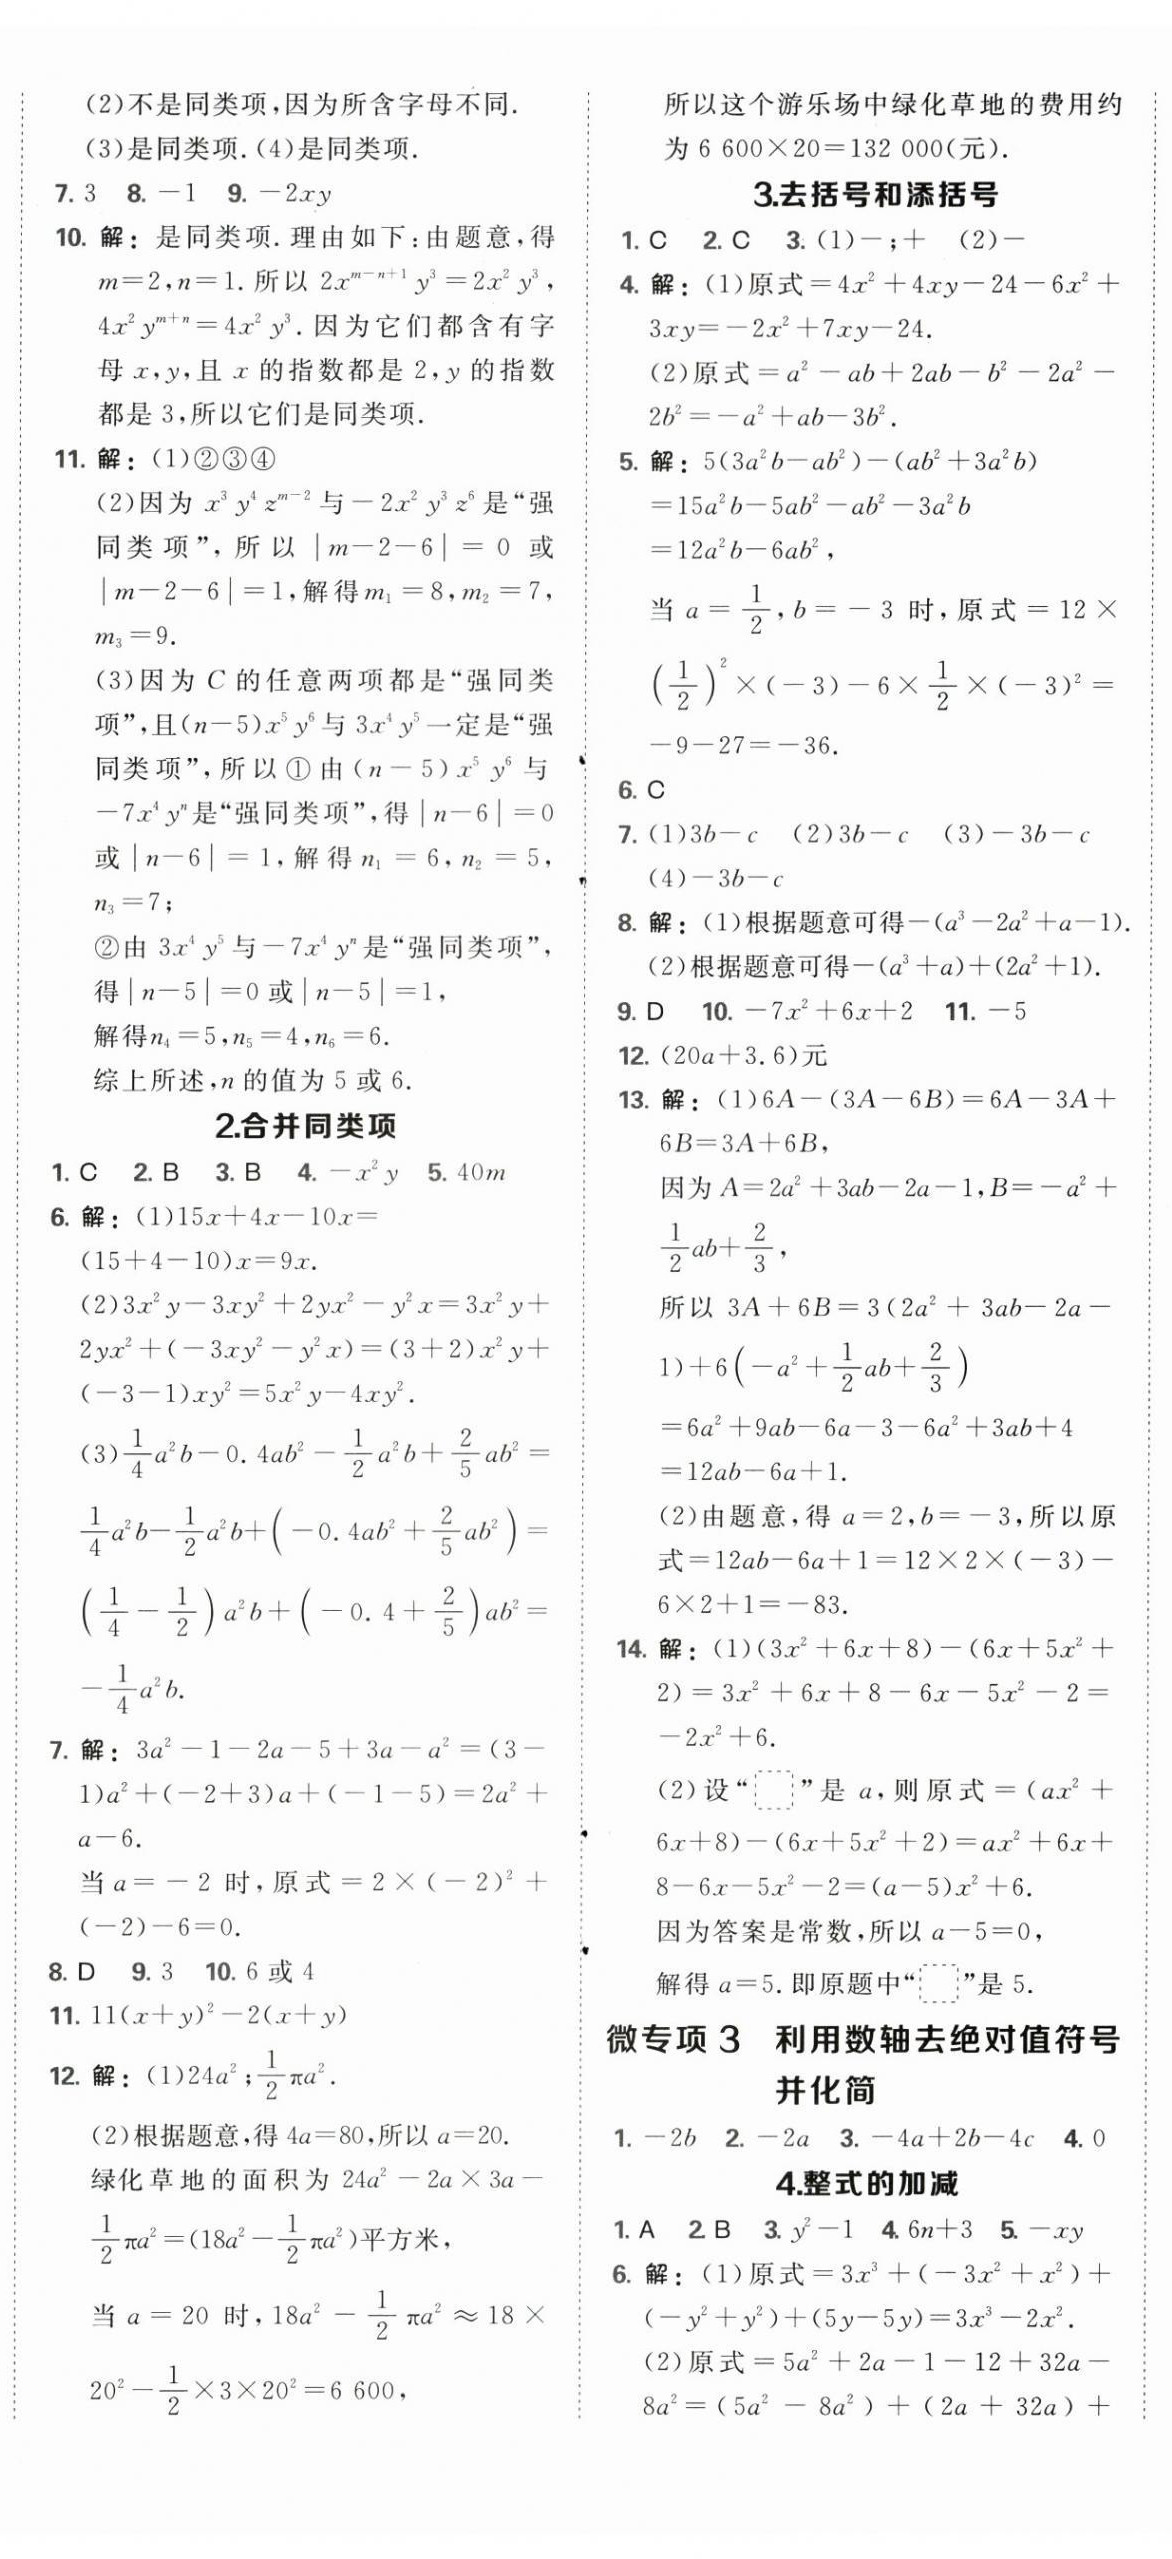 (2)不是同类项,因为所含字母不同.
(3)是同类项.(4)是同类项.
7. 3 8. －1 9. －2xy
10. 解：是同类项.理由如下:由题意,得
m＝2,n＝1.所以 2x^{m－n＋1}y³＝2x²y³,
4x²y^{m＋n}＝4x²y³.因为它们都含有字
母 x,y,且 x 的指数都是 2,y 的指数
都是 3,所以它们是同类项.
11. 解：(1)②③④
(2)因为 x³y⁴z^{m－2}与－2x²y³z⁶是“强
同类项”,所以|m－2－6|＝0 或
|m－2－6|＝1,解得m₁＝8,m₂＝7,
m₃＝9.
(3)因为 C 的任意两项都是“强同类
项”,且(n－5)x⁵y⁶与 3x⁴y⁵一定是“强
同类项”,所以①由(n－5)x⁵y⁶与
－7x⁴yⁿ是“强同类项”,得|n－6|＝0
或|n－6|＝1,解得 n₁＝6,n₂＝5,
n₃＝7;
②由 3x⁴y⁵与－7x⁴yⁿ是“强同类项”,
得|n－5|＝0 或|n－5|＝1,
解得n₄＝5,n₅＝4,n₆＝6.
综上所述,n 的值为 5 或 6.
2.合并同类项
1. C 2. B 3. B 4. －x²y 5. 40m
6. 解：(1)15x＋4x－10x＝
(15＋4－10)x＝9x.
(2)3x²y－3xy²＋2yx²－y²x＝3x²y＋
2yx²＋(－3xy²－y²x)＝(3＋2)x²y＋
(－3－1)xy²＝5x²y－4xy².
(3)1/4a²b－0.4ab²－1/2a²b＋2/5ab²＝
1/4a²b－1/2a²b＋(－0.4ab²＋2/5ab²)＝
(1/4－1/2)a²b＋(－0.4＋2/5)ab²＝
－1/4a²b.
7. 解：3a²－1－2a－5＋3a－a²＝(3－
1)a²＋(－2＋3)a＋(－1－5)＝2a²＋
a－6.
当 a＝－2 时,原式＝2×(－2)²＋
(－2)－6＝0.
8. D 9. 3 10. 6 或 4
11. 11(x＋y)²－2(x＋y)
12. 解：(1)24a²;1/2πa².
(2)根据题意,得 4a＝80,所以 a＝20.
绿化草地的面积为 24a²－2a×3a－
1/2πa²＝(18a²－1/2πa²)平方米,
当 a＝20 时,18a²－1/2πa²≈18×
20²－1/2×3×20²＝6 600,
所以这个游乐场中绿化草地的费用约
为 6 600×20＝132 000(元).
3.去括号和添括号
1. C 2. C 3. (1)－;＋ (2)－
4. 解：(1)原式＝4x²＋4xy－24－6x²＋
3xy＝－2x²＋7xy－24.
(2)原式＝a²－ab＋2ab－b²－2a²－
2b²＝－a²＋ab－3b².
5. 解：5(3a²b－ab²)－(ab²＋3a²b)
＝15a²b－5ab²－ab²－3a²b
＝12a²b－6ab²,
当 a＝1/2,b＝－3 时,原式＝12×
(1/2)²×(－3)－6×1/2×(－3)²＝
－9－27＝－36.
6. C
7. (1)3b－c (2)3b－c (3)－3b－c
(4)－3b－c
8. 解：(1)根据题意可得－(a³－2a²＋a－1).
(2)根据题意可得－(a³＋a)＋(2a²＋1).
9. D 10. －7x²＋6x＋2 11. －5
12. (20a＋3.6)元
13. 解：(1)6A－(3A－6B)＝6A－3A＋
6B＝3A＋6B,
因为 A＝2a²＋3ab－2a－1,B＝－a²＋
1/2ab＋2/3,
所以 3A＋6B＝3(2a²＋3ab－2a－
1)＋6(－a²＋1/2ab＋2/3)
＝6a²＋9ab－6a－3－6a²＋3ab＋4
＝12ab－6a＋1.
(2)由题意,得 a＝2,b＝－3,所以原
式＝12ab－6a＋1＝12×2×(－3)－
6×2＋1＝－83.
14. 解：(1)(3x²＋6x＋8)－(6x＋5x²＋
2)＝3x²＋6x＋8－6x－5x²－2＝
－2x²＋6.
(2)设“ ”是 a,则原式＝(ax²＋
6x＋8)－(6x＋5x²＋2)＝ax²＋6x＋
8－6x－5x²－2＝(a－5)x²＋6.
因为答案是常数,所以 a－5＝0,
解得 a＝5.即原题中“ ”是 5.
微专项 3 利用数轴去绝对值符号
并化简
1. －2b 2. －2a 3. －4a＋2b－4c 4. 0
4.整式的加减
1. A 2. B 3. y²－1 4. 6n＋3 5. －xy
6. 解：(1)原式＝3x³＋(－3x²＋x²)＋
(－y²＋y²)＋(5y－5y)＝3x³－2x².
(2)原式＝5a²＋2a－1－12＋32a－
8a²＝(5a²－8a²)＋(2a＋32a)＋